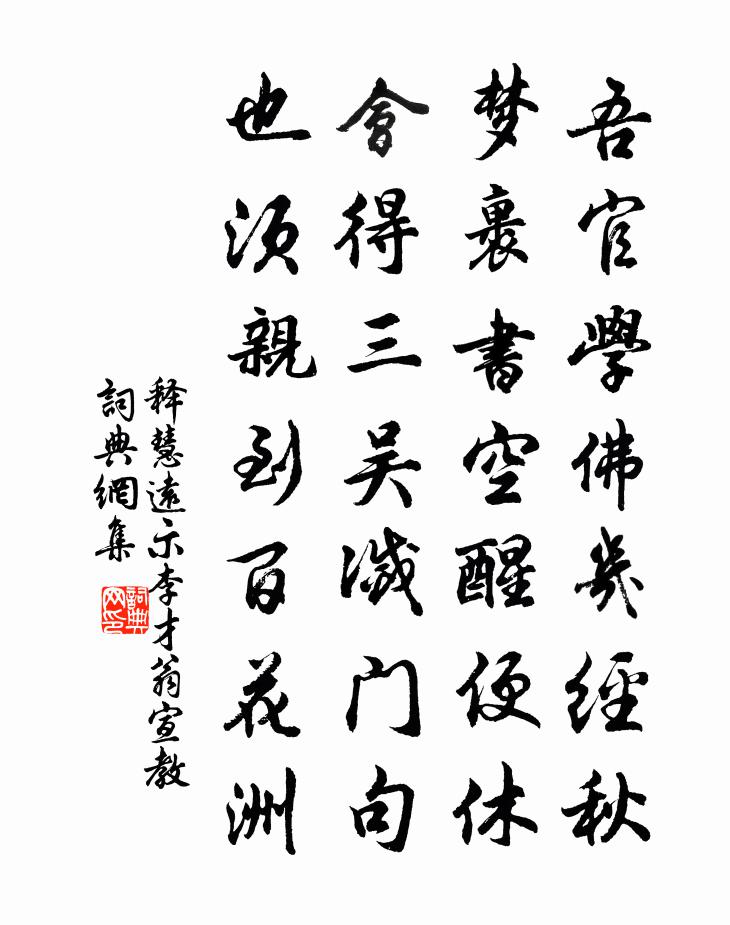 吾官學佛幾經秋
梦裏書空醒便休
會得三吴滅门句
也须親到百花洲
释慧遠示李才翁宣教
詞典網集
詞典网印